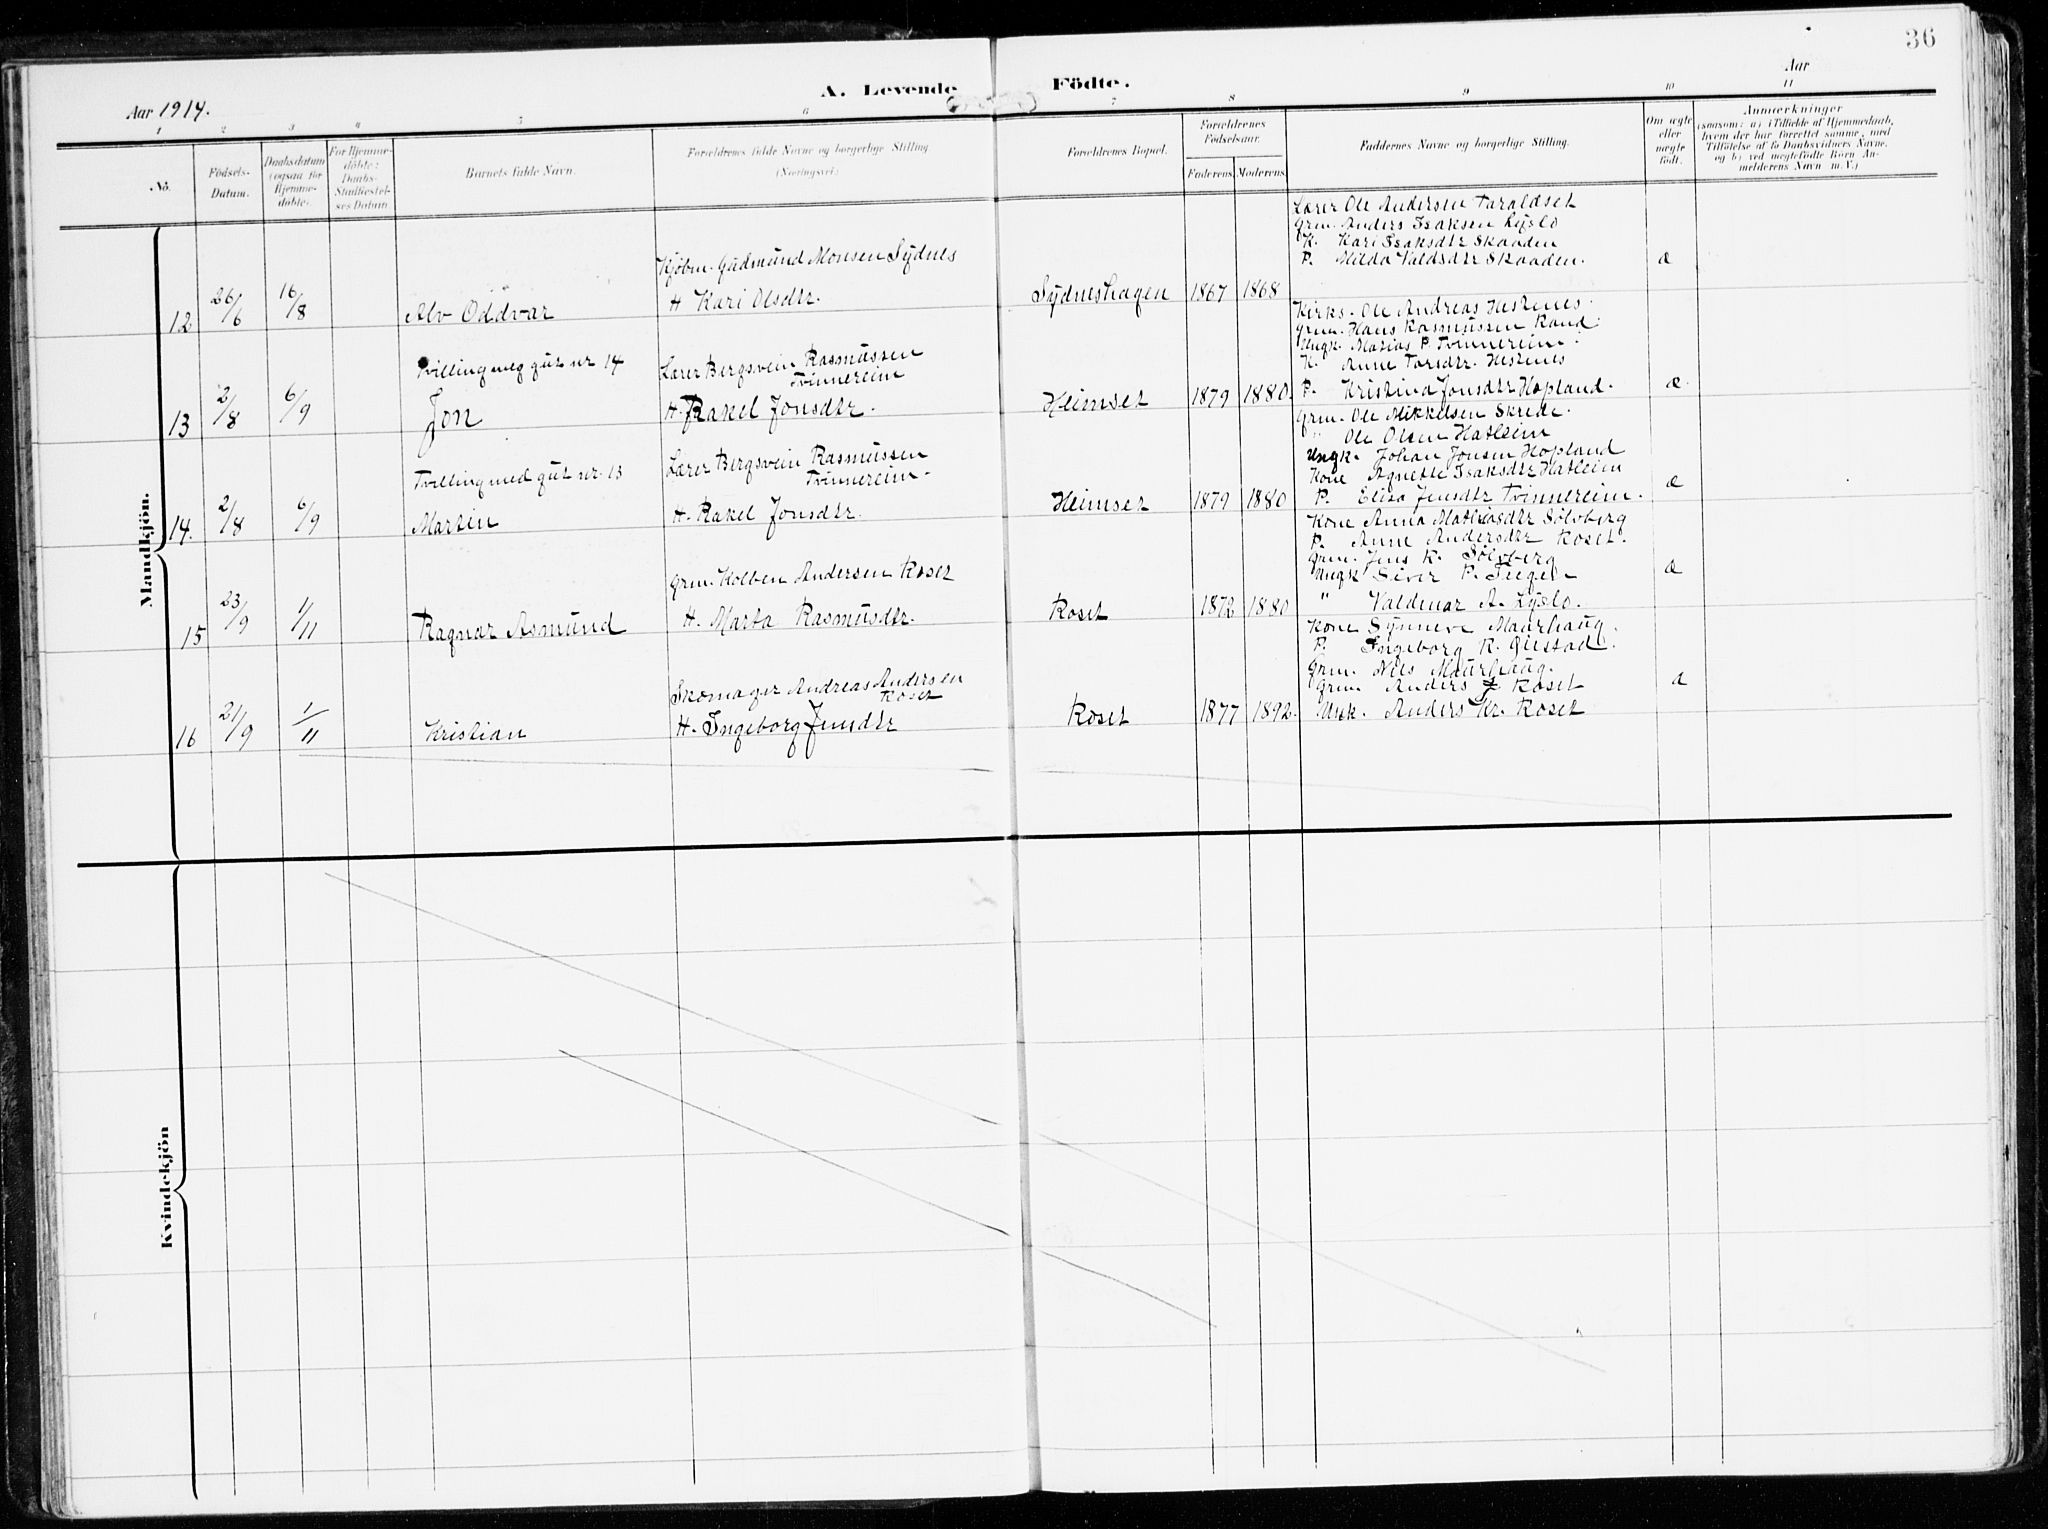 36
A. Levende Födte.
Aar 1914.
Aar
1 2 3 4 5 6 7 8 9 10 11
No.
Födsels-Datum.
Daabsdatum (ogsaa for Hjemme-döbte.
For Hjemme-döbte: Daabs-Stadfæstel-ses Datum.
Barnets fulde Navn.
Forældrenes fulde Navne og borgerlige Stilling.
(Næringsvei)
Forældrenes Bopæl.
Forældrenes Födselsaar.
Faderens Moderens
Faddernes Navne og borgerlige Stilling.
Om ægte eller uægte födt.
Anmærkninger
(saasom: a) i Tilfælde af Hjemmedaab,
hvem der har forrettet samme, med
Tilföielse af to Daabsvidners Navne,
og b) ved uægtefödte Börn An-
melderens Navn m. V.)
Mandkjön.
12 26/6 16/8 Alv Oddvar
Kjöbm. Gudmund Monsen Sydnes
H Kari Olsdtr.
Sydneshagen 1867 1868
Lærer Ole Andersen Taraldset
Grm. Anders Isaksen Lyslo
K. Kari Isaksdtr Skaaden
P. Milda Valdsdtr Skaaden. æ
13 2/8 6/9
Tvilling meg gut nr 14
Jon
Lærer Bergsvein Rasmussen
Tvinnereim
H. Rakel Jonsdtr.
Heimset 1879 1880.
Kirks. Ole Andreas Hestenes.
Grm. Hans Rasmussen Rand.
Ungk. Matias P. Tvinnereim.
K. Anne Torsdtr. Hestenes
P. Kristina Jonsdtr Hopland. æ.
14. 2/8 6/9
Tvilling med gut nr. 13
Martin
Lærer Bergsvein Rasmussen
Tvinnereim.
H. Rakel Jonsdtr.
Heimset 1879 1880
Grm. Ole Mikkelsen Skrede.
" Ole Olsen Hatleim
Ungk. Johan Jonsen Hopland
Kone Agnette Isaksdtr Hatleim
P. Elisa Jensdtr Tvinnereim. æ
15 23/9 1/11 Ragnar Asmund
Grm. Kolben Andersen Roset
H. Marta Rasmusdtr.
Roset 1872 1880
Kone Anna Mathiasdtr Sölvberg
P. Anne Andersdtr Roset.
Grm. Jens K. Sölvberg
Ungk Siver P. æ
" Valdemar A. Lyslo.
16 21/9 1/11 Kristian
Skomager Andreas Andersen
Roset
H. Ingeborg Jensdtr
Roset 1877 1892.
Kone Synneve Maurhaug.
P. Ingeborg R. Gilstad.
Grm. Nils Maurhaug.
Grm. Anders J. Roset æ
Ungk. Anders Kr. Roset
Kvindekjön